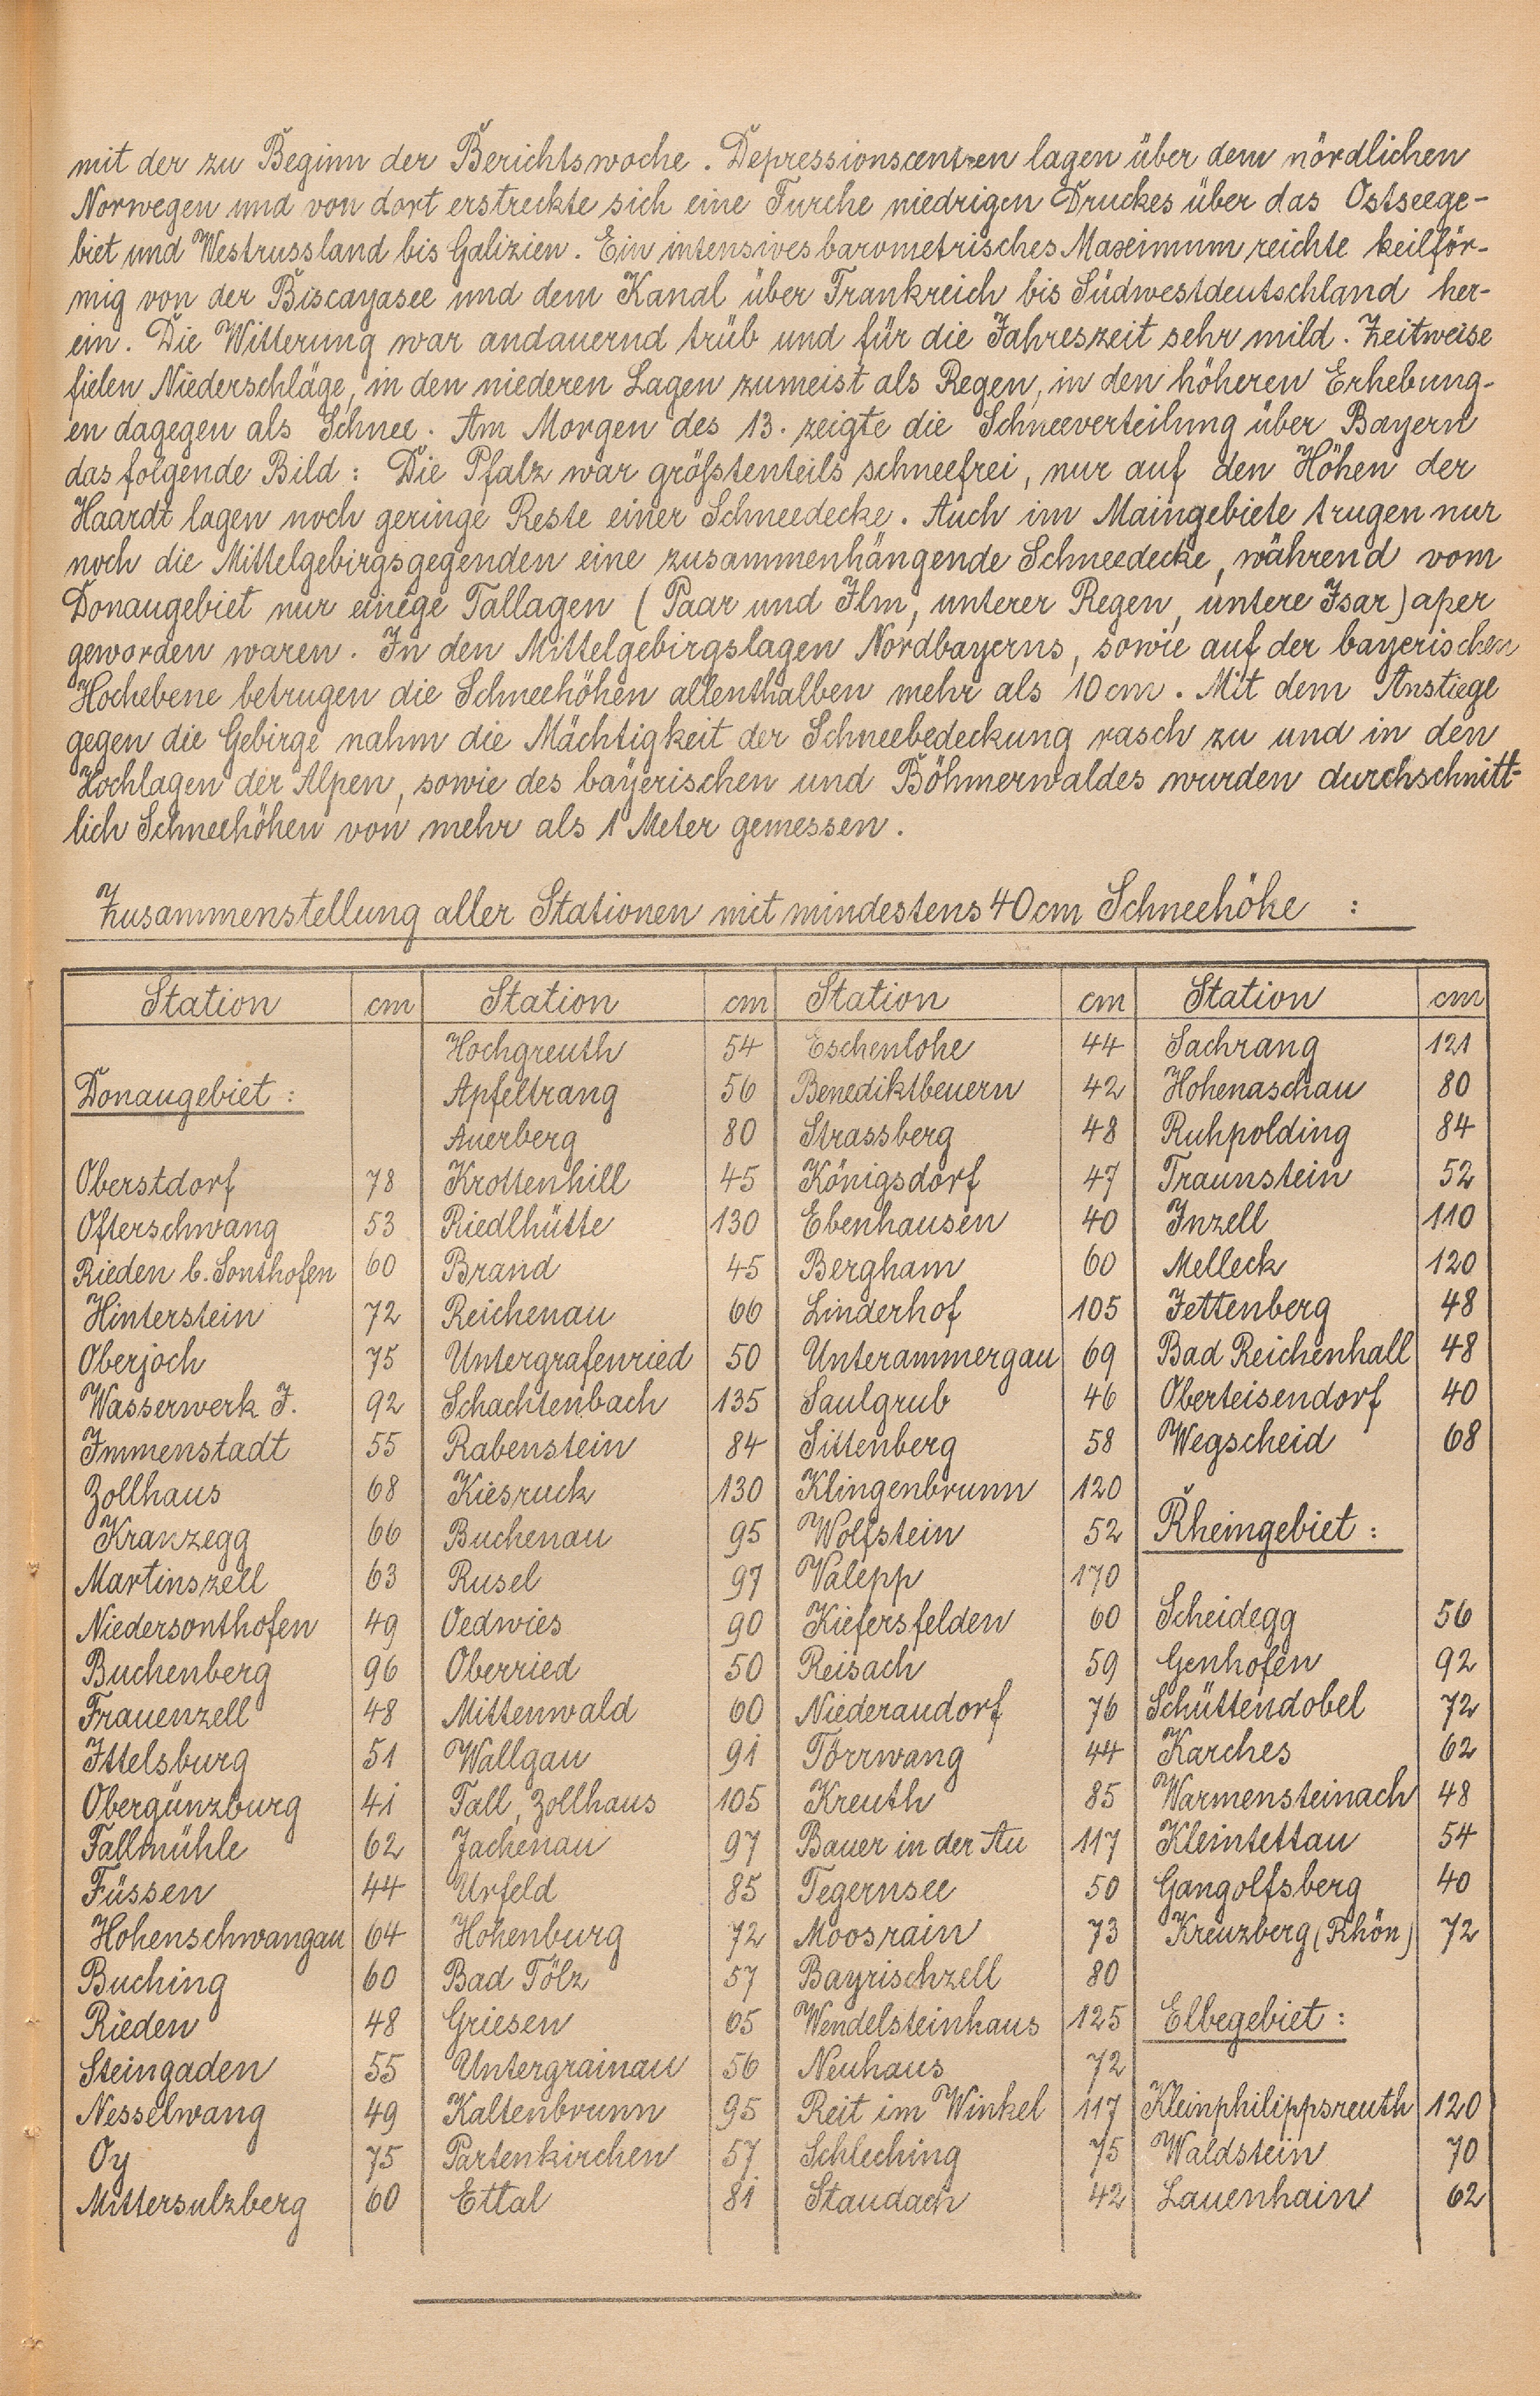 mit der zu Beginn der Berichtswoche. Depressionscentren lagen über dem nördlichen
Norwegen und von dort erstreckte sich eine Furche niedrigen Druckes über das Ostseege-
biet und Westrussland bis Galizien. Ein intensives barometrisches Maximum reichte keilför-
mig von der Biscayasee und dem Kanal über Frankreich bis Südwestdeutschland her-
ein. Die Witterung war andauernd trüb und für die Jahreszeit sehr mild. Zeitweise
fielen Niederschläge, in den niederen Lagen zumeist als Regen, in den höheren Erhebung-
en dagegen als Schnee. Am Morgen des 13. zeigte die Schneeverteilung über Bayern
das folgende Bild: Die Pfalz war größtenteils schneefrei, nur auf den Höhen der
Haardt lagen noch geringe Reste einer Schneedecke. Auch im Maingebiete trugen nur
noch die Mittelgebirgsgegenden eine zusammenhängende Schneedecke, während vom
Donaugebiet nur einige Tallagen (Paar und Ilm, unterer Regen, untere Isar) aper
geworden waren. In den Mittelgebirgslagen Nordbayerns, sowie auf der bayerischen
Hochebene betrugen die Schneehöhen allenthalben mehr als 10 cm. Mit dem Anstiege
gegen die Gebirge nahm die Mächtigkeit der Schneebedeckung rasch zu und in den
Hochlagen der Alpen, sowie des bayerischen und Böhmerwaldes wurden durchschnitt-
lich Schneehöhen von mehr als 1 Meter gemessen.
Zusammenstellung aller Stationen mit mindestens 40 cm Schneehöhe :
Station cm Station cm Station cm Station cm
Hochgreuth 54 Eschenlohe 44 Sachrang 121
Donaugebiet : Apfeltrang 56 Benediktbeuern 42 Hohenaschau 80
Auerberg 80 Strassberg 48 Ruhpolding 84
Oberstdorf 78 Krottenhill 45 Königsdorf 47 Traunstein 52
Ofterschwang 53 Riedlhütte 130 Ebenhausen 40 Inzell 110
Rieden b. Sonthofen 60 Brand 45 Bergham 60 Melleck 120
Hinterstein 72 Reichenau 66 Linderhof 105 Jettenberg 48
Oberjoch 75 Untergrafenried 50 Unterammergau 69 Bad Reichenhall 48
Wasserwerk J. 92 Schachtenbach 135 Saulgrub 46 Oberteisendorf 40
Immenstadt 55 Rabenstein 84 Sittenberg 58 Wegscheid 68
Zollhaus 68 Kiesruck 130 Klingenbrunn 120
Kranzegg 66 Buchenau 95 Wolfstein 52 Rheingebiet :
Martinszell 63 Rusel 97 Valepp 170
Niedersonthofen 49 Oedwies 90 Kiefersfelden 60 Scheidegg 56
Buchenberg 96 Oberried 50 Reisach 59 Genhofen 92
Frauenzell 48 Mittenwald 60 Niederaudorf 76 Schüttendobel 72
Ittelsburg 51 Wallgau 91 Törrwang 44 Karches 62
Obergünzburg 41 Fall, Zollhaus 105 Kreuth 85 Warmensteinach 48
Fallmühle 62 Jachenau 97 Bauer in der Au 117 Kleintettau 54
Füssen 44 Urfeld 85 Tegernsee 50 Gangolfsberg 40
Hohenschwangau 64 Hohenburg 72 Moosrain 73 Kreuzberg (Rhön) 72
Buching 60 Bad Tölz 57 Bayrischzell 80
Rieden 48 Griesen 65 Wendelsteinhaus 125 Elbegebiet :
Steingaden 55 Untergrainau 56 Neuhaus 72
Nesselwang 49 Kaltenbrunn 95 Reit im Winkel 117 Kleinphilippsreuth 120
Oy 75 Partenkirchen 57 Schleching 75 Waldstein 70
Mittersulzberg 60 Ettal 81 Staudach 42 Lauenhain 62